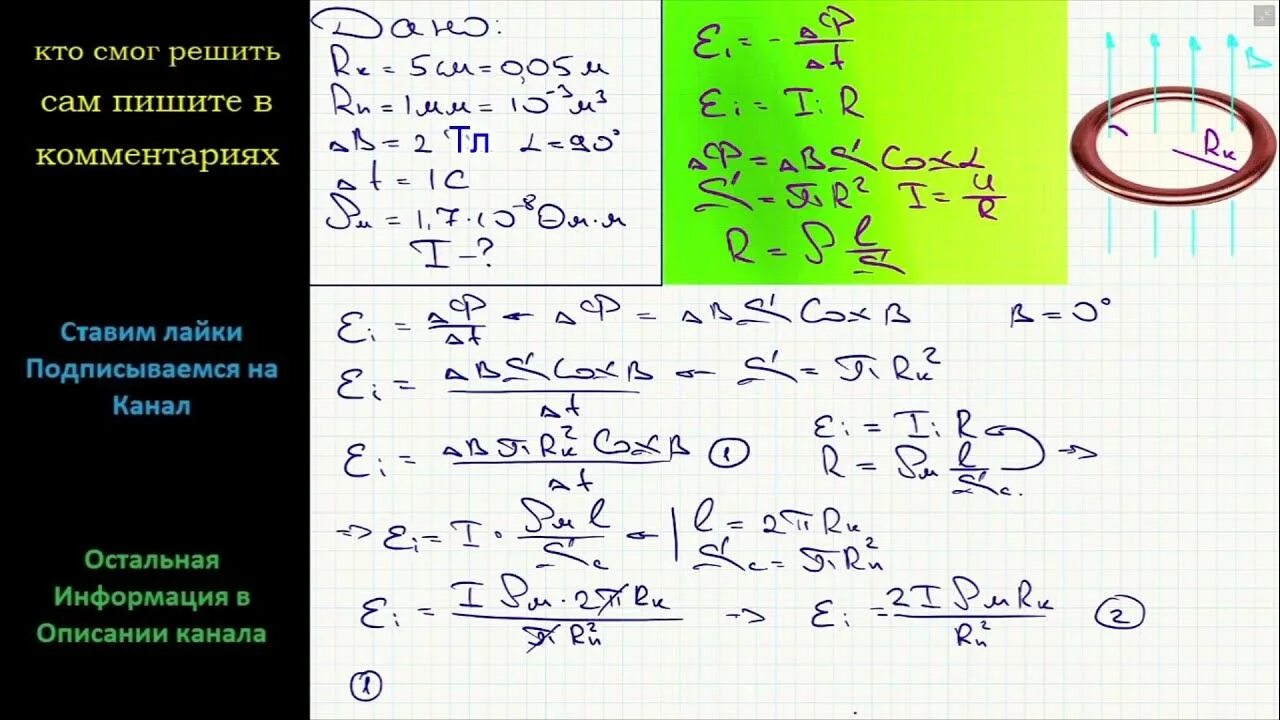 кто смог решить
сам пишите в
комментариях
Ставим лайки
Подписываемся на
Канал
Остальная
Информация в
Описании канала
Дано:
Rк = 5 см = 0,05 м
Rп = 1 мм = 10⁻³ м³
ΔB = 2 Тл α = 90°
Δt = 1 С
ρм = 1,7·10⁻⁸ Ом·м
I - ?
εi = - ΔФ/Δt
εi = Ii R
ΔФ = ΔB S Cos α
S = πR² I = U/R
R = ρ l/S
B
Rк
εi = ΔФ/Δt ← ΔФ = ΔB S Cos β β = 0°
εi = ΔB S Cos β/Δt ← S = πRк²
εi = ΔB π Rк² Cos β/Δt ①
εi = Ii R
R = ρм l/Sс. →
⇒ εi = I · ρм l/Sс ← | l = 2πRк
Sс = πRп²
εi = I ρм · 2π Rк/π Rп² → εi = 2 I ρм Rк/Rп² ②
①